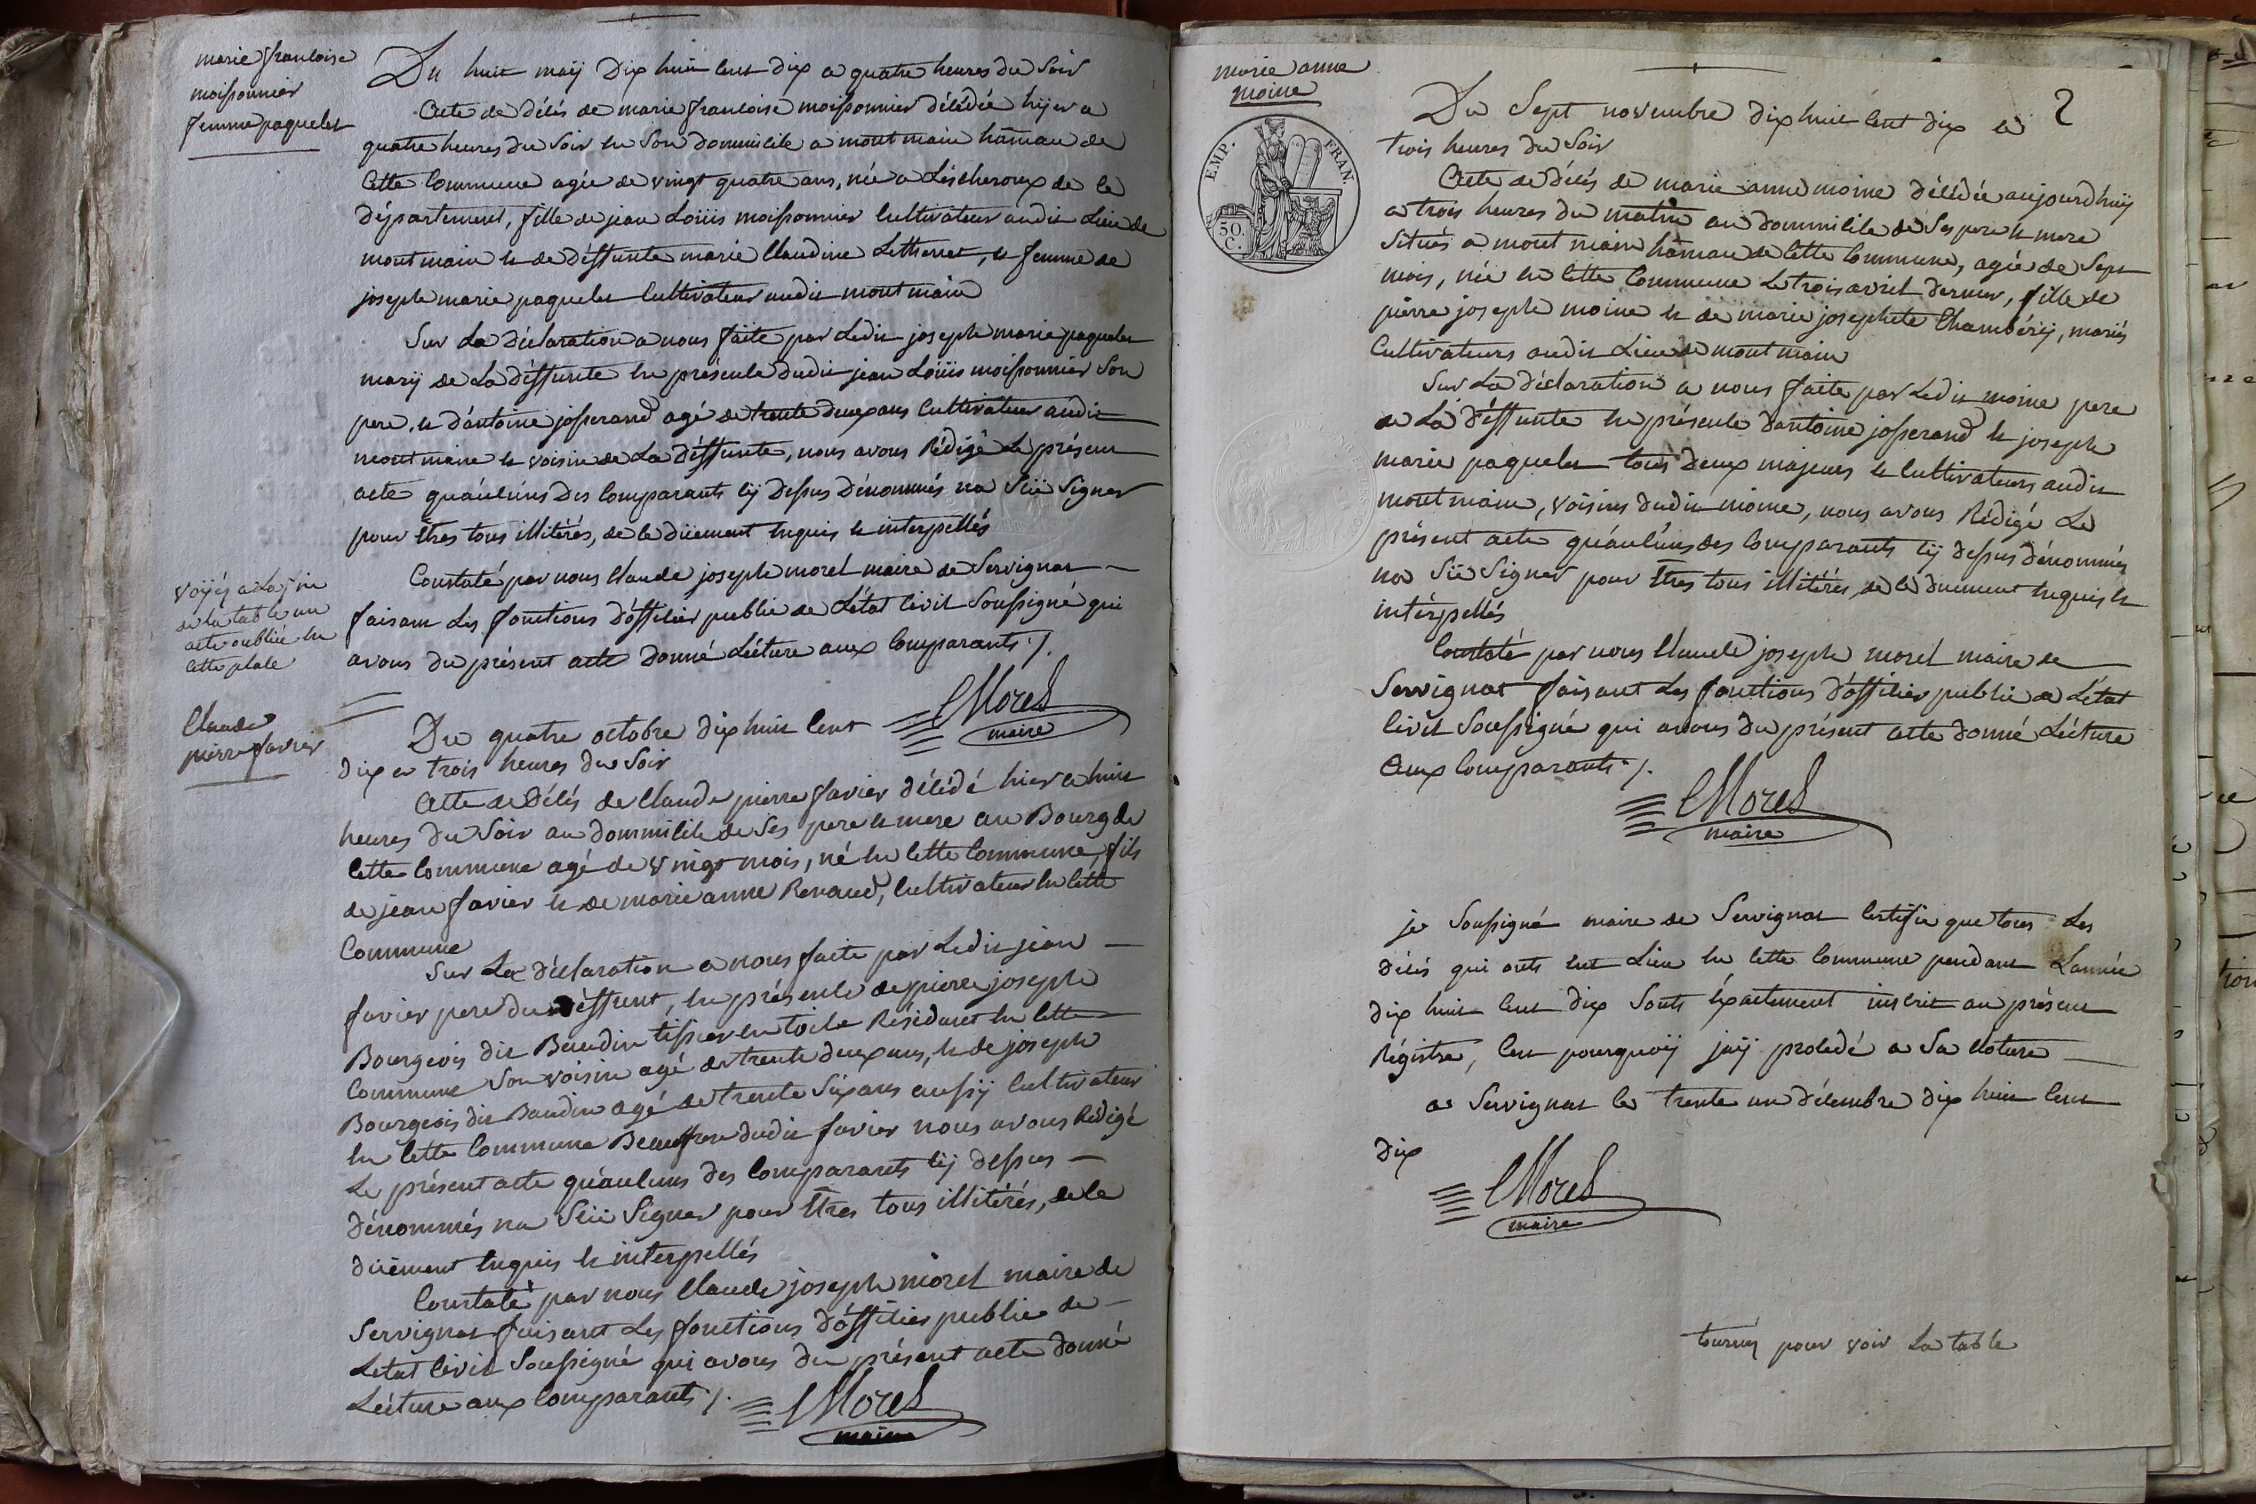 marie francoise
moissonnier
femme paquelet
Du huit maÿ dix huit cent dix a quatre heures du Soir
Acte de décés de marie francoise moissonnier décédée hÿer a
quatre heures du Soir en Son dommicile a montmain hâmau de
Cette Commune agée de vingt quatre ans, née a Lescheroux de ce
département, fille de jean Loüis moissonnier Cultivateur audit Lieu de
montmain et de déffunte marie Claudine, et femme de
joseph marie paquelet Cultivateur audit montmain
Sur La déclaration a nous faite par Ledit joseph marie paquelet
marÿ de La déffunte en présence dudit jean Loüis moissonnier Son
pere, et d'antoine josserand agé de trente deux ans Cultivateur audit
montmain et voisin de La déffunte, nous avons Rédigé Le présent
acte qu'aucuns des Comparants cÿ dessus dénommés na Sçü Signer
pour êtres tous illitérés, de ce düement enquis et interpellés
Constaté par nous Claude joseph morel maire de Servignat
faisant Les fonctions d'officier public de L'état Civil Soussigné qui
avons du présent acte donné Lécture aux Comparants ./.
CMorel
maire
voÿés a La fin
de la table un
acte oublié en
cette place
Claude
pierre favier
Du quatre octobre dix huit Cent
dix a trois heures du Soir
Acte de décés de Claude pierre favier décédé hier a huit
heures du Soir au dommicile de Ses pere et mere au Bourg de
Cette Commune agé de vingt mois, né en Cette Commune, fils
de jean favier et de marie anne Renaud, Cultivateur en Cette
Commune
Sur La déclaration a nous faite par Ledit jean
favier pere du déffunt, en présence de pierre joseph
Bourgeois dit Baudin tissier en toile Résidant en Cette
Commune Son voisin agé de trente deux ans, et de joseph
Bourgeois dit Baudin agé de trente Six ans aussÿ Cultivateur
en Cette Commune Beaufrere dudit favier nous avons Rédigé
Le présent acte qu'aucuns des Comparants cÿ dessus
dénommés na Sçü Signer pour êtres tous illitérés, de ce
düement enquis et interpellés
Constaté par nous Claude joseph morel maire de
Servignat faisant Les fonctions d'officier public de
Létat Civil Soussigné qui avons du présent acte donné
Lécture aux Comparants ./.
CMorel
maire
marie anne
moine
EMP. FRAN.
50.
C.
2
Du Sept novembre dix huit Cent dix a
trois heures du Soir
Acte de décés de marie anne moine décédée aujourdhuÿ
a trois heures du matin au dommicile de Ses pere et mere
Situés a montmain hâmau de Cette Commune, agée de Sept
mois, née en Cette Commune Le trois avril dernier, fille de
pierre joseph moine et de marie josephete Chambérÿ, mariés
Cultivateurs audit Lieu de montmain
Sur La déclaration a nous faite par Ledit moine pere
de La déffunte en présence d'antoine josserand et joseph
marie paquelet tous deux majeurs et Cultivateurs audit
montmain, voisins dudit moine, nous avons Rédigé Le
présent acte qu'aucuns des Comparants cÿ dessus dénommés
na Sçü Signer pour êtres tous illitérés, de ce duement enquis et
intérpellés
Constaté par nous Claude joseph morel maire de
Servignat faisant Les fonctions d'officier public de L'état
Civil Soussigné qui avons du présent acte donné Lécture
aux Comparants ./.
CMorel
maire
je Soussigné maire de Servignat Certifie que tous Les
décés qui onts eut Lieu en Cette Commune pendant L'année
dix huit Cent dix Sonts éxactement inscrit au présent
Régistre, C'est pourquoÿ jaÿ procédé a Sa Cloture
a Servignat le trente un décembre dix huit Cent
dix
CMorel
maire
tournéz pour voir La table